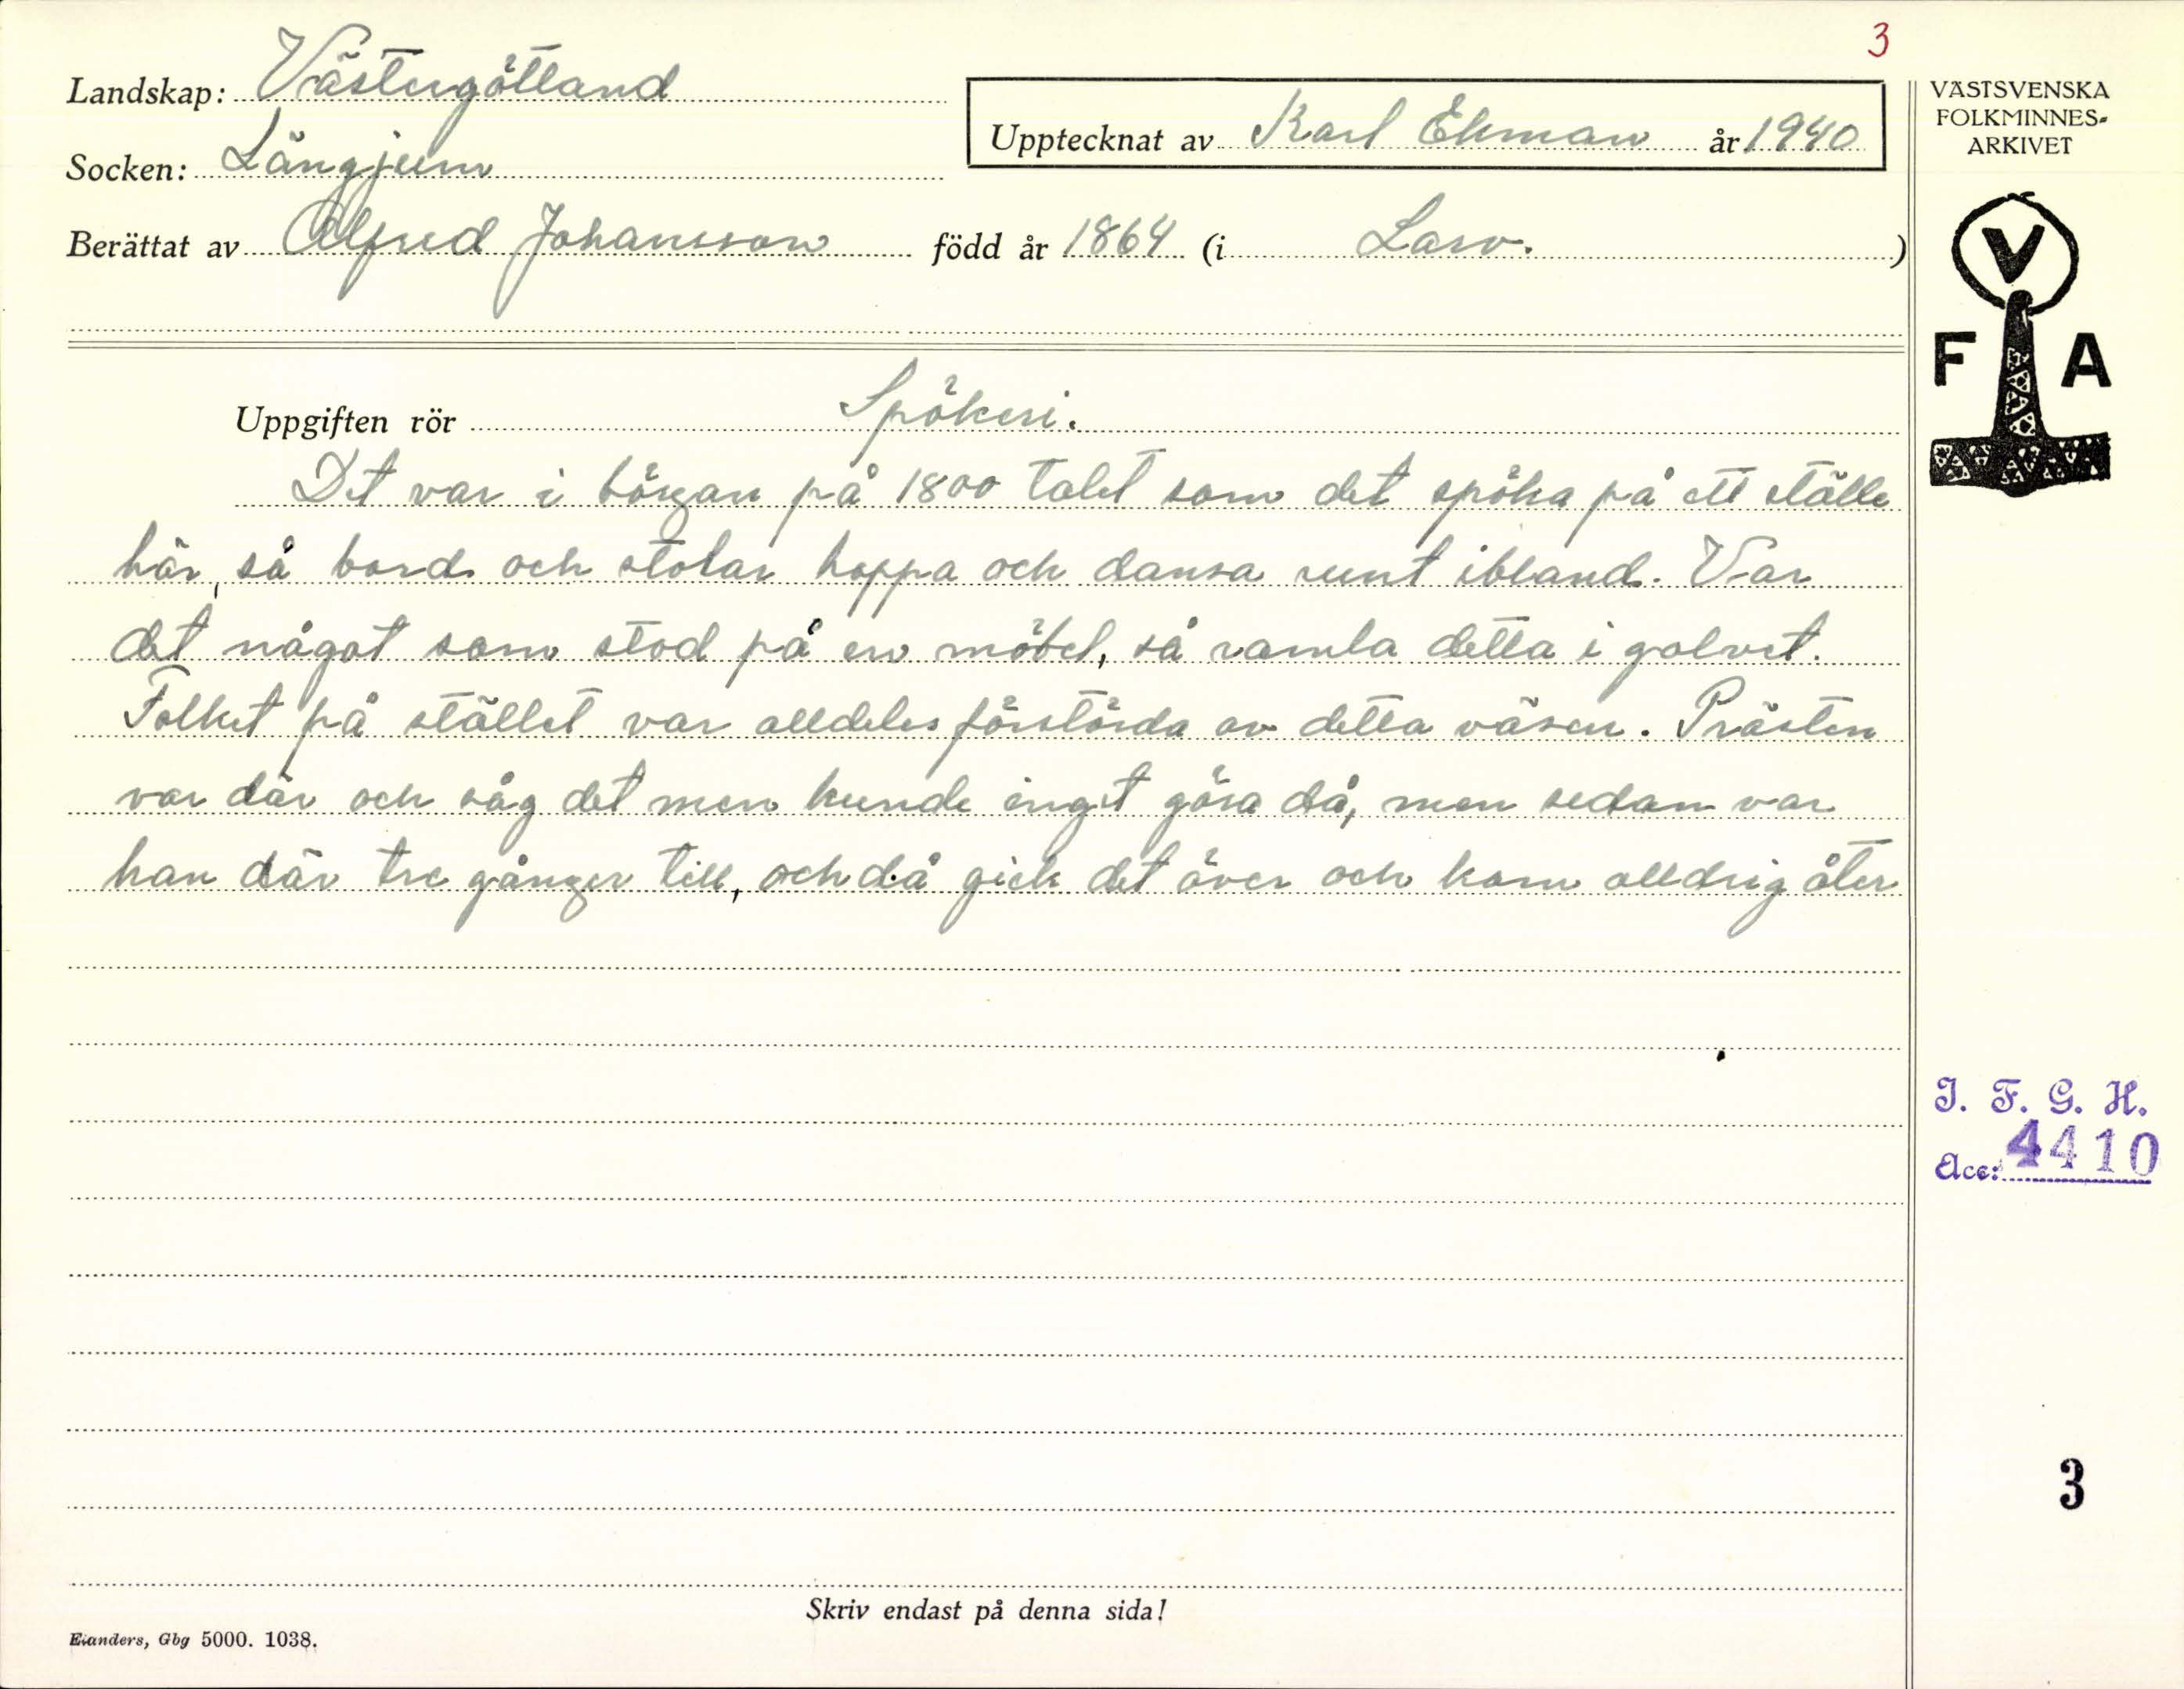 3
Landskap: Västergötland
Socken: Längjum
Upptecknat av Karl Ekman år 1940
Berättat av Alfred Johansson född år 1864 (i Larv.)
VÄSTSVENSKA
FOLKMINNES-
ARKIVET
V
F A
Uppgiften rör Spökeri.
Det var i början på 1800 talet som det spöka på ett ställe
här, så bord och stolar hoppa och dansa runt ibland. Var
det något som stod på en möbel, så ramla detta i golvet.
Folket på stället var alldeles förstörda av detta väsen. Prästen
var där och såg det men kunde inget göra då, men sedan var
han där tre gånger till, och då gick det över och kom alldrig åter
I. F. G. H.
Acc: 4410
3
Skriv endast på denna sida!
Elanders, Gbg 5000. 1038.